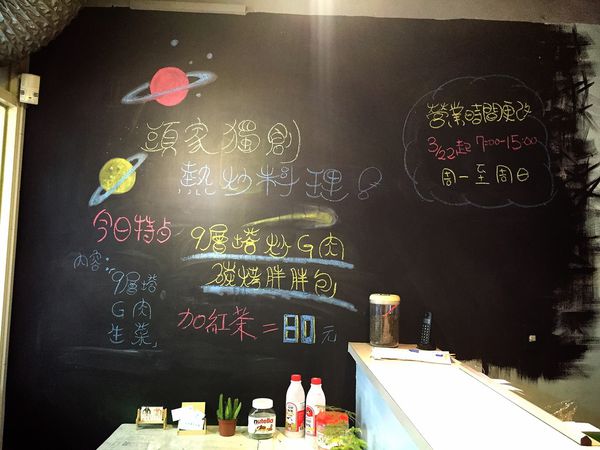 頭家獨創
熱炒料理!
營業時間更改
3/22起 7:00-15:00
周一至周日
今日特点
9層塔炒G肉
碳烤胖胖包
內容:
9層塔
G肉
生菜
加紅茶=80元
nutella